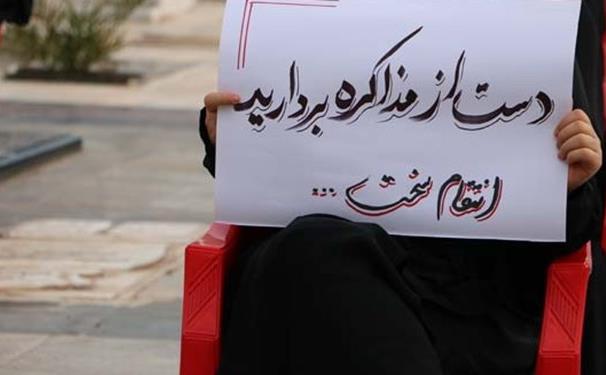 دست از مذاکره بردارید
انتقام سخت ...